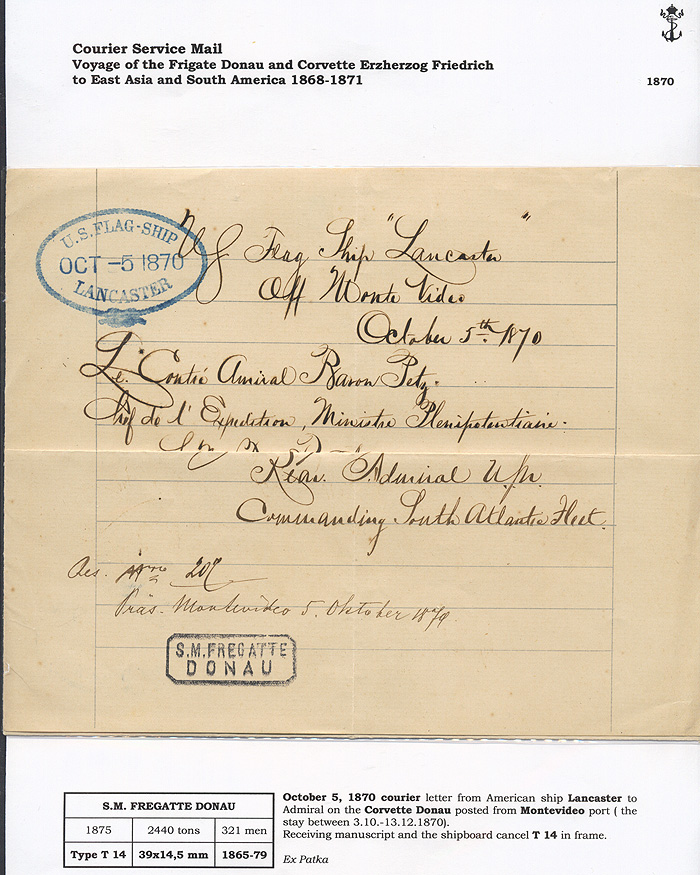 Courier Service Mail
Voyage of the Frigate Donau and Corvette Erzherzog Friedrich
to East Asia and South America 1868-1871
1870
U.S. FLAG-SHIP
OCT -5 1870
LANCASTER
US Flag Ship "Lancaster"
Off Monte Video
October 5th 1870
Le Contre Amiral Baron Petz.
Chef de l'Expedition, Ministre Plenipotentiaire.
Rear Admiral
Commanding South Atlantic Fleet.
Res. Nro 207
Präs. Montevideo 5. Oktober 1870
S.M. FREGATTE
DONAU
S.M. FREGATTE DONAU
1875 2440 tons 321 men
Type T 14 39x14,5 mm 1865-79
October 5, 1870 courier letter from American ship Lancaster to
Admiral on the Corvette Donau posted from Montevideo port ( the
stay between 3.10.-13.12.1870).
Receiving manuscript and the shipboard cancel T 14 in frame.
Ex Patka